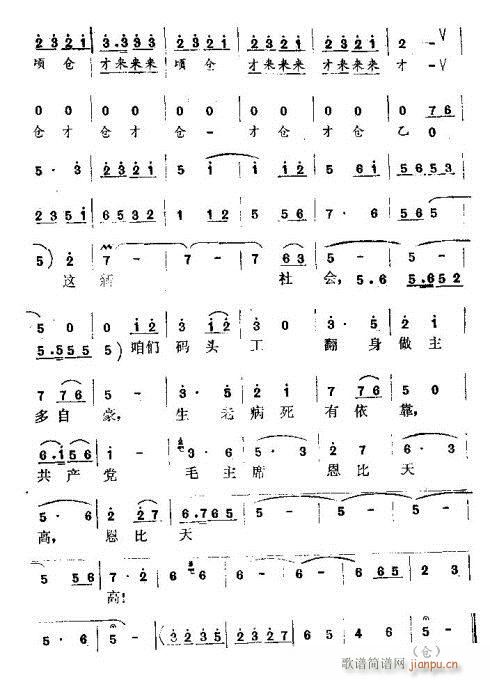 2 3 2 1 | 3. 3 3 3 | 2 3 2 1 | 2 3 2 1 | 2 3 2 1 | 2 - V
顷仓 才来来来 顷仓 才来来来 才来来来 才
0 0 | 0 0 | 0 0 | 0 0 | 0 0 | 0 7 6
仓才 仓才 仓 - 才仓 才仓 乙 0
5 · 3 | 2 3 2 1 | 5 i | i i 2 | 5 6 i | 5 6 5 3
2 3 5 1 | 6 5 3 2 | 1 1 2 | 5 5 6 | 7 · 6 | 5 6 5
5) 2 | 7 - | 7 - | 7 6 3 | 5 - | 5 -
这 社 会, 5. 6 5. 6 5 2
5 0 0 | 0 i 2 | 3 i 2 i | 3 0 | 3 · 5 | 2 i
5. 5 5 5 5) 咱们 码头 工 翻身 做主
7 7 6 | 5 - | 3 · 5 | 2 i | 7 7 6 | 5 0
多自 豪, 生老 病死 有依 靠,
6. i 5 6 | i - | i - | 5 · 3 | 2 7 | 6 · 3
共产 党 毛 主席 恩比 天
5 · 6 | 2 2 7 | 6. 7 6 5 | 5 - | 5 - | 5 -
高, 恩比 天
5 5 6 | 7 · 2 | 6 6 | 6 - | 6 5 6 | 2 3
高!
5 · 6 | 5 - | (3 2 3 5 | 2 3 2 7 | 6 5 4 6 | 5 - )
(仓)
歌谱简谱网
jianpu.cn